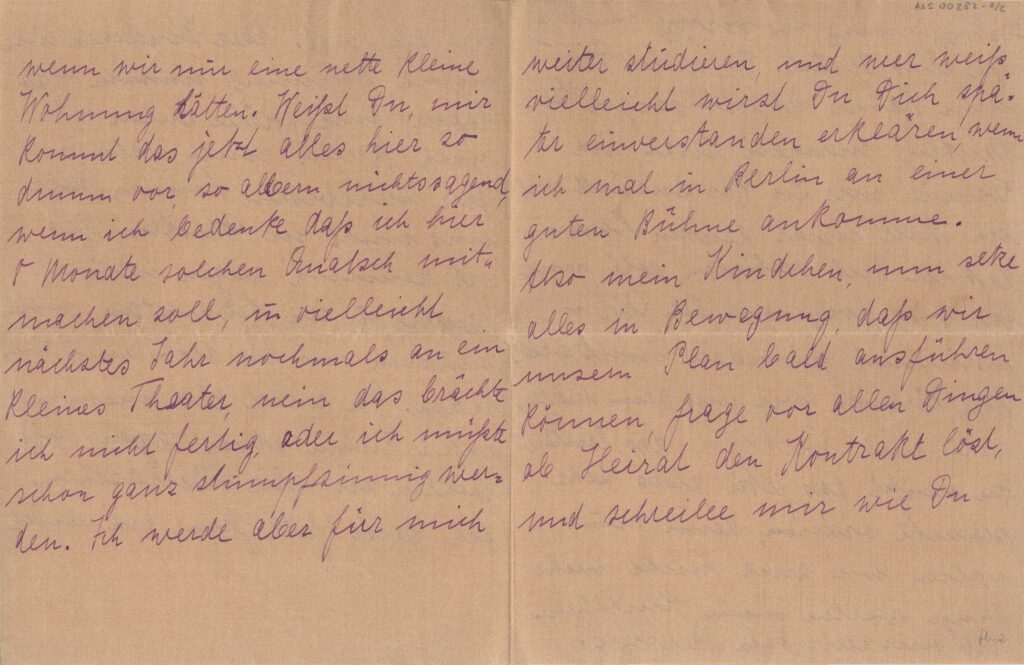 ALS 00282-2/2
wenn wir nur eine nette kleine
Wohnung hätten. Weißt Du, mir
kommt das jetzt alles hier so
dumm vor, so albern, nichtssagend,
wenn ich bedenke daß ich hier
5 Monate solchen Quatsch mit-
machen soll, u vielleicht
nächstes Jahr nochmals an ein
kleines Theater, nein das brächte
ich nicht fertig, oder ich müßte
schon ganz stumpfsinnig wer-
den. Ich werde aber für mich
weiter studieren, und wer weiß
vielleicht wirst Du Dich spä-
ter einverstanden erklären, wenn
ich mal in Berlin an einer
guten Bühne ankomme.
Also mein Kindchen, nun setze
alles in Bewegung, daß wir
unsern Plan bald ausführen
können, frage vor allen Dingen
ob Heirat den Kontrakt löst,
und schreibe mir wie Du